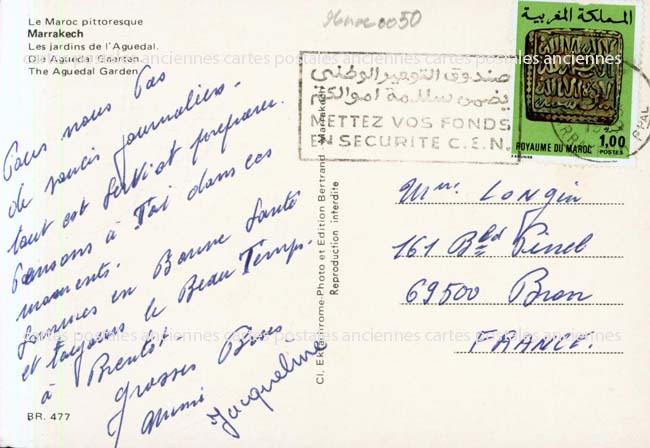 Le Maroc pittoresque
Marrakech
Les jardins de l'Aguedal.
Die Aguedal Gaerten.
The Aguedal Garden
cartes postales anciennes cartes postales anciennes cartes postales anciennes
Pour nous Pas
de soucis journaliers.
tout est servi et préparer.
Pensons à Toi dans ces
moments.
Sommes en Bonne Santé
et toujours le Beau Temps.
à Bientôt.
Grosses Bises
Mimi
Jacqueline
BR. 477
Cl. Ekta Jirrome-Photo et Edition Bertrand - Marrakech
Reproduction interdite
صندوق التوفير الوطني
يضمن سلامة اموالكم
METTEZ VOS FONDS
EN SECURITE C.E.N.
المملكة المغربية
1,00
ROYAUME DU MAROC
POSTES
Mme LONGIN
161 Bld Pinel
69500 Bron
FRANCE.
cartes postales anciennes cartes postales anciennes cartes postales anciennes